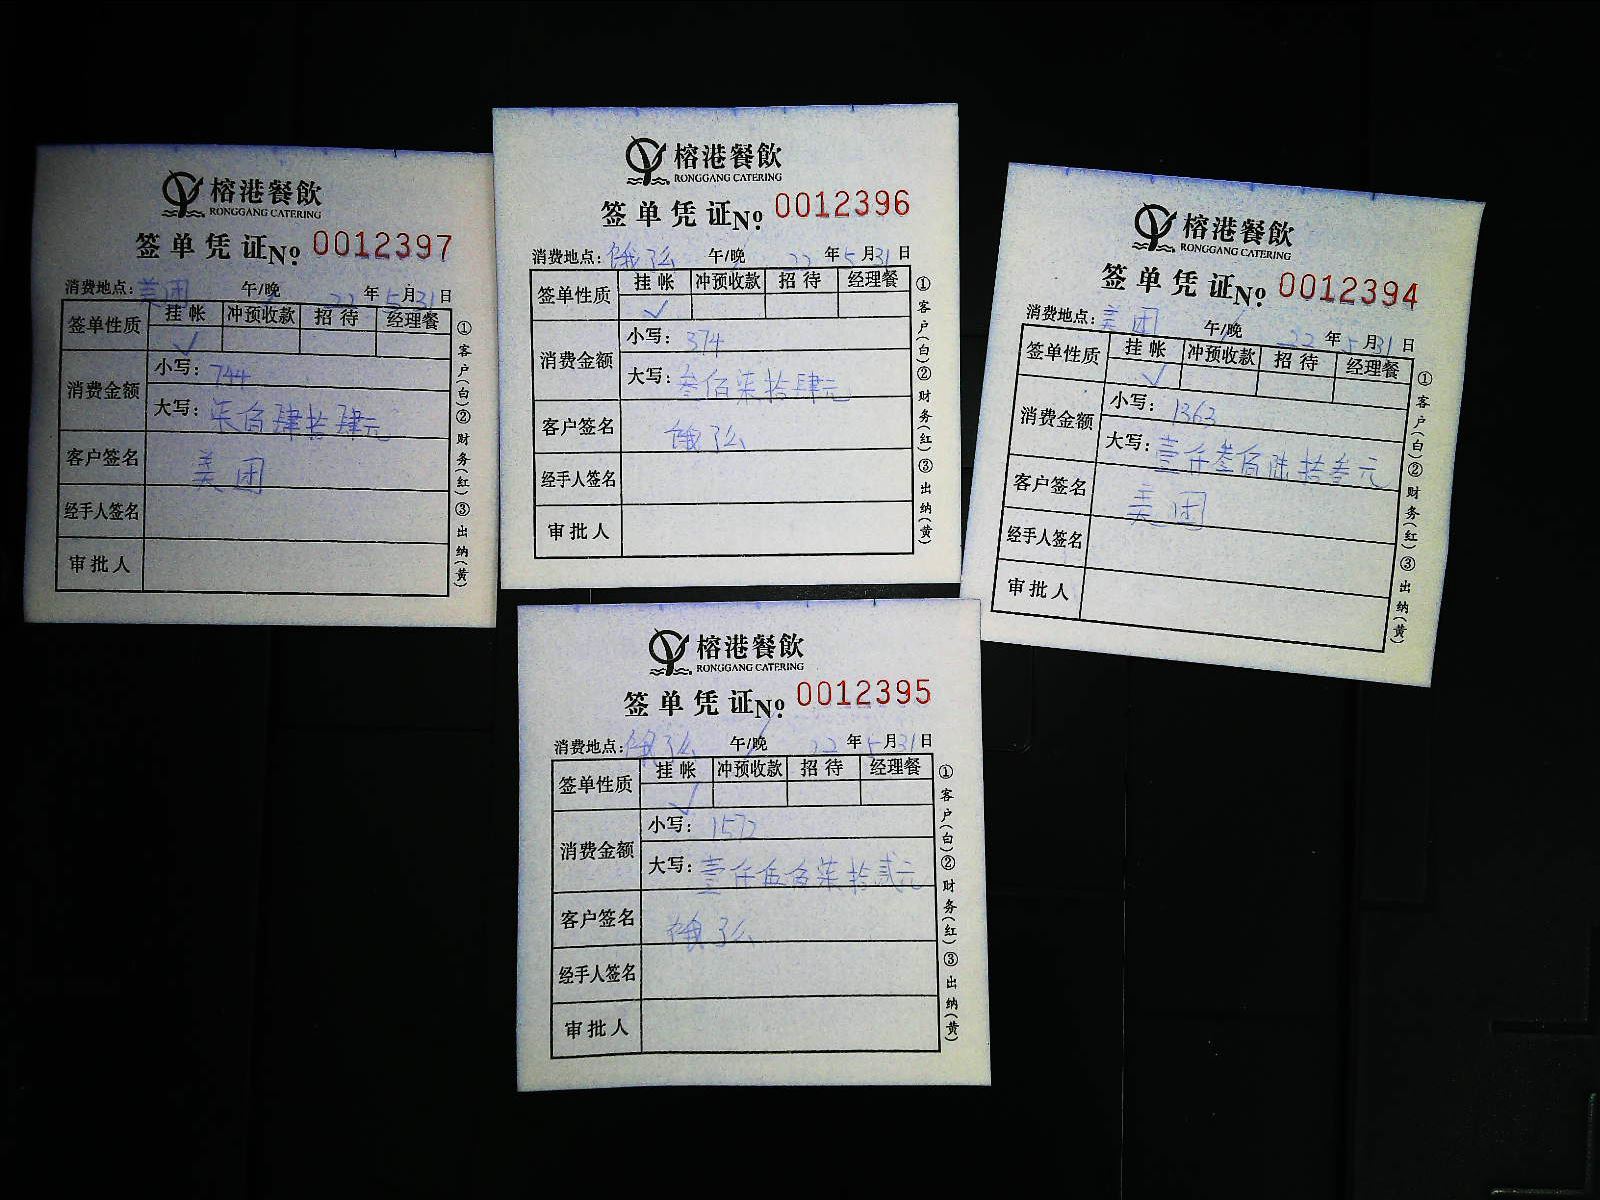 榕港餐飲
RONGGANG CATERING
签单凭证No. 0012397
消费地点：美团 午/晚 22年5月31日
签单性质 挂帐 冲预收款 招待 经理餐
✓
消费金额 小写：744
大写：柒佰肆拾肆元
客户签名 美团
经手人签名
审批人
①客户(白)②财务(红)③出纳(黄)
榕港餐飲
RONGGANG CATERING
签单凭证No. 0012396
消费地点：饿了么 午/晚 22年5月31日
签单性质 挂帐 冲预收款 招待 经理餐
✓
消费金额 小写：374
大写：叁佰柒拾肆元
客户签名 饿了么
经手人签名
审批人
①客户(白)②财务(红)③出纳(黄)
榕港餐飲
RONGGANG CATERING
签单凭证No. 0012394
消费地点：美团 午/晚 22年5月31日
签单性质 挂帐 冲预收款 招待 经理餐
✓
消费金额 小写：1363
大写：壹仟叁佰陆拾叁元
客户签名 美团
经手人签名
审批人
①客户(白)②财务(红)③出纳(黄)
榕港餐飲
RONGGANG CATERING
签单凭证No. 0012395
消费地点：饿了么 午/晚 22年5月31日
签单性质 挂帐 冲预收款 招待 经理餐
✓
消费金额 小写：1572
大写：壹仟伍佰柒拾贰元
客户签名 饿了么
经手人签名
审批人
①客户(白)②财务(红)③出纳(黄)